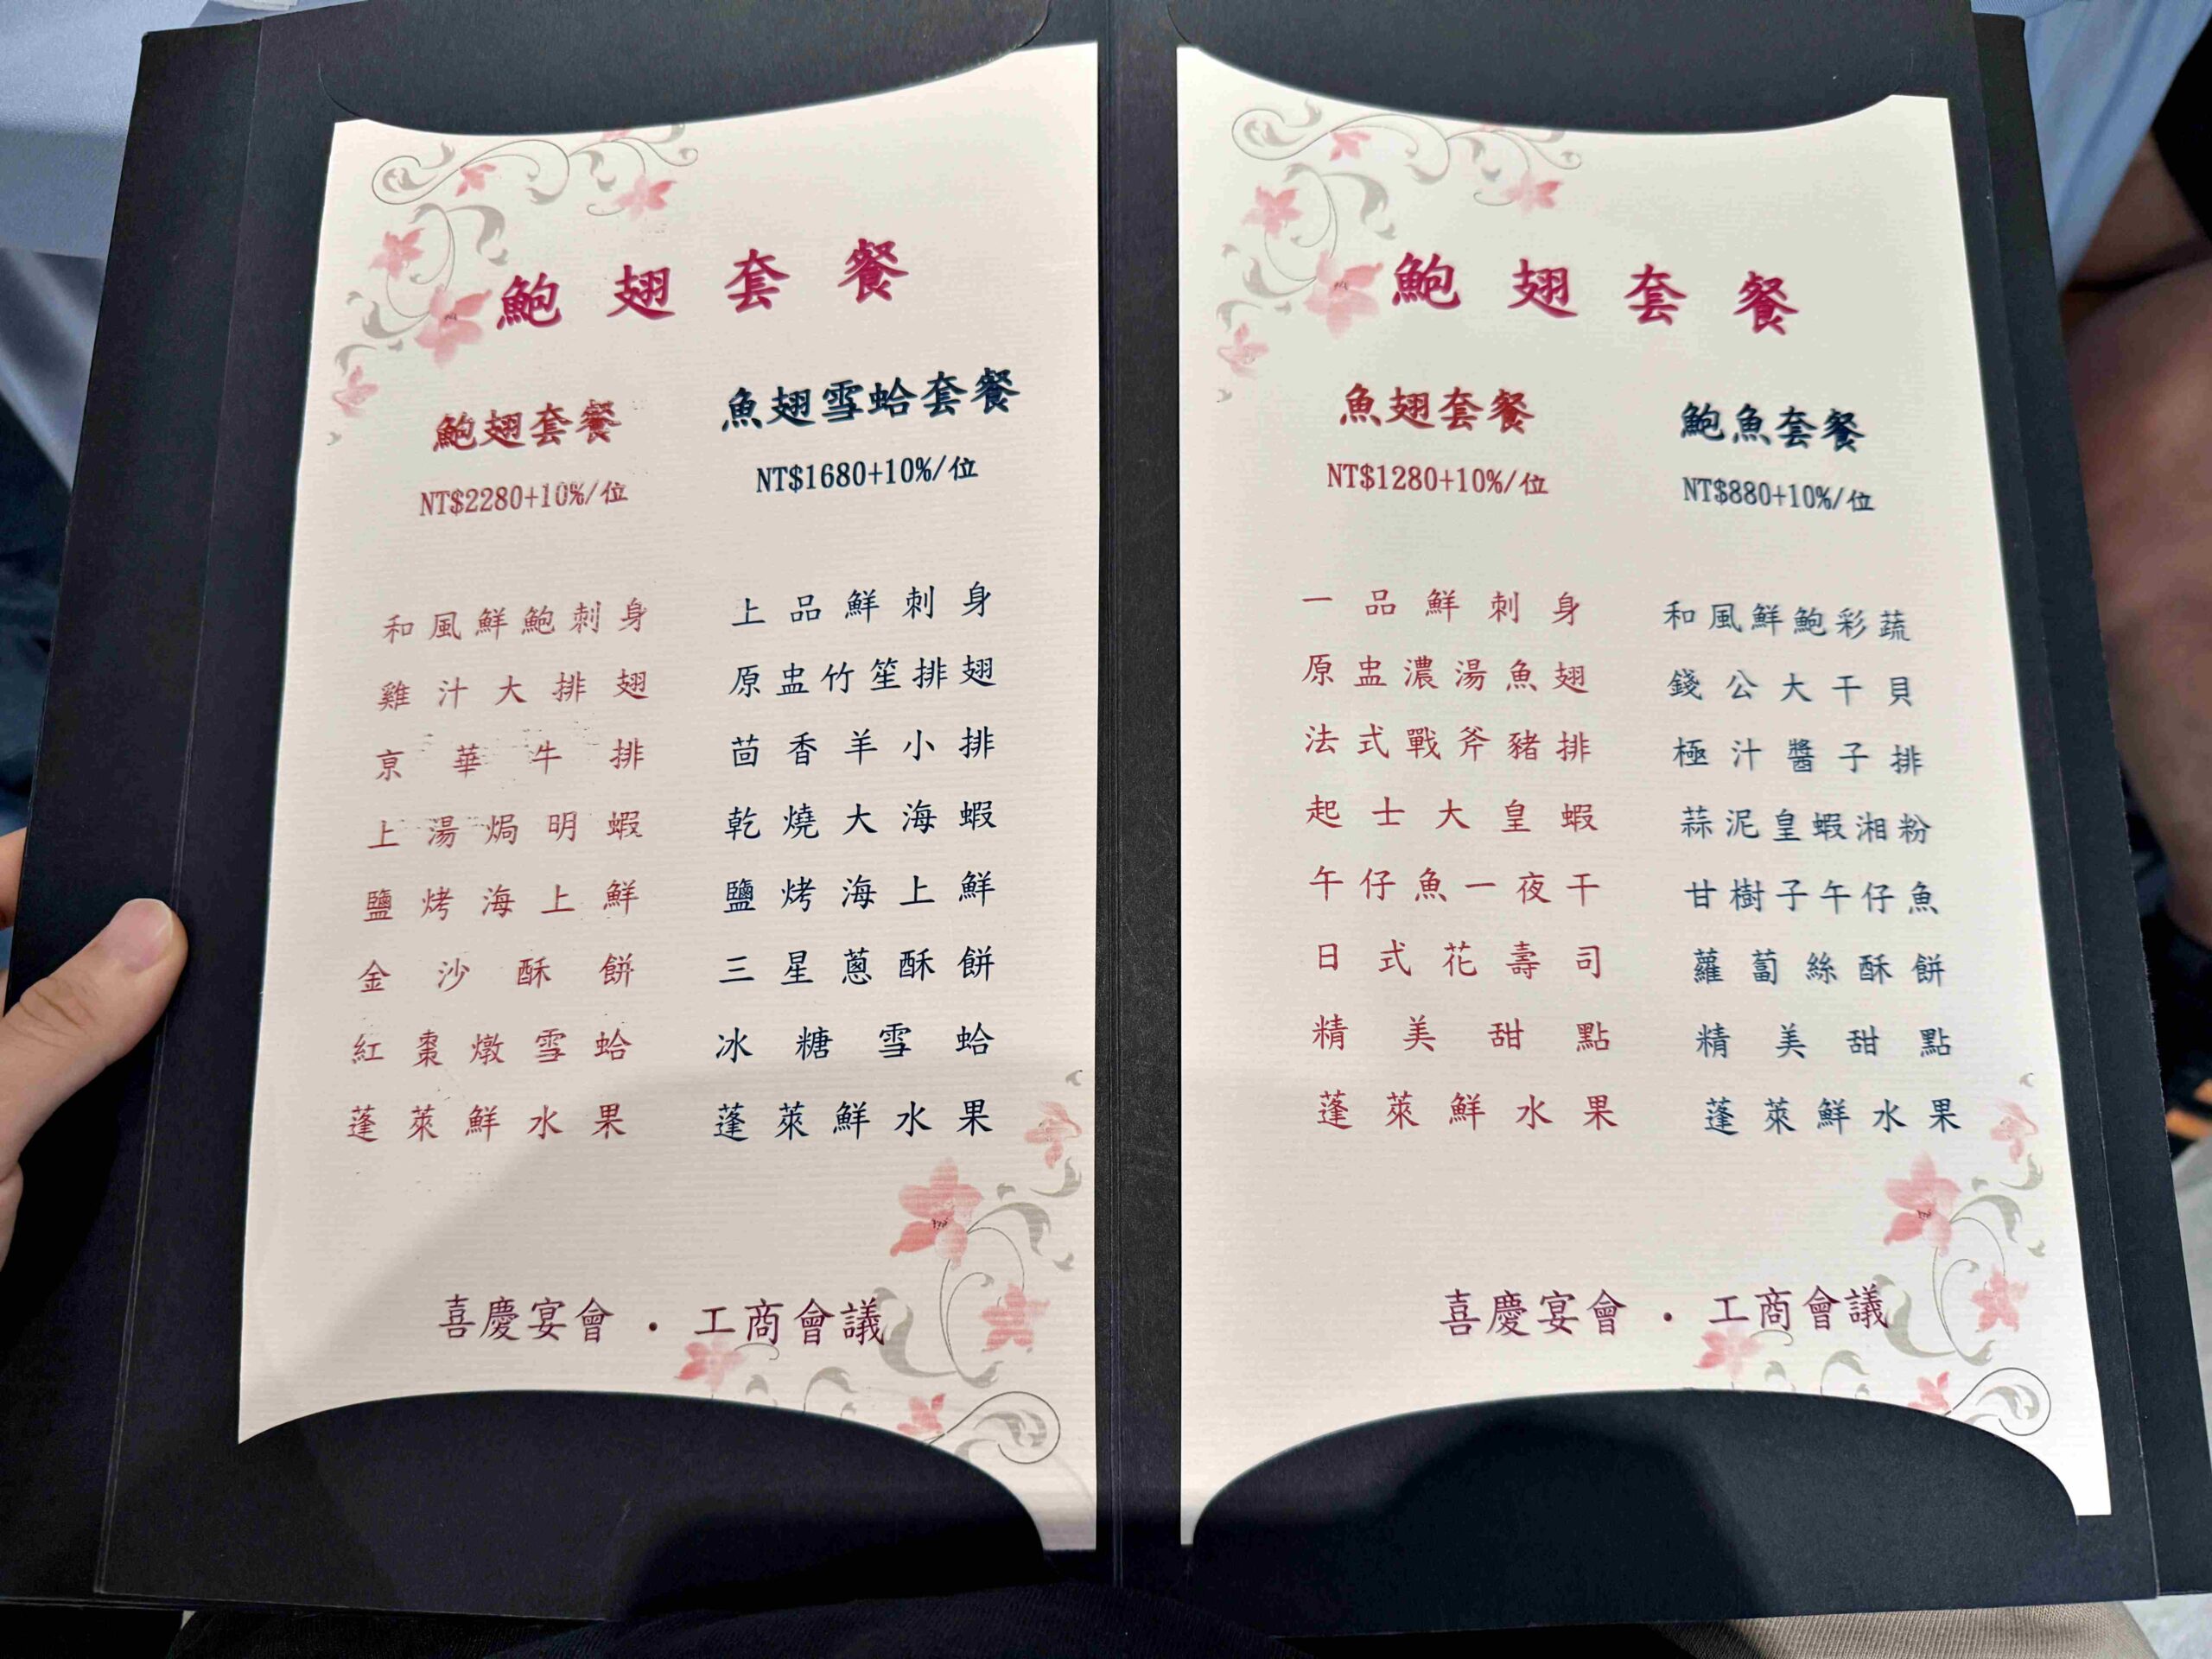 鮑翅套餐
鮑翅套餐
NT$2280+10%/位
和風鮮鮑刺身
雞汁大排翅
京華牛排
上湯焗明蝦
鹽烤海上鮮
金沙酥餅
紅棗燉雪蛤
蓬萊鮮水果
魚翅雪蛤套餐
NT$1680+10%/位
上品鮮刺身
原盅竹笙排翅
茴香羊小排
乾燒大海蝦
鹽烤海上鮮
三星蔥酥餅
冰糖雪蛤
蓬萊鮮水果
喜慶宴會・工商會議
鮑翅套餐
魚翅套餐
NT$1280+10%/位
一品鮮刺身
原盅濃湯魚翅
法式戰斧豬排
起士大皇蝦
午仔魚一夜干
日式花壽司
精美甜點
蓬萊鮮水果
鮑魚套餐
NT$880+10%/位
和風鮮鮑彩蔬
錢公大干貝
極汁醬子排
蒜泥皇蝦湘粉
甘樹子午仔魚
蘿蔔絲酥餅
精美甜點
蓬萊鮮水果
喜慶宴會・工商會議